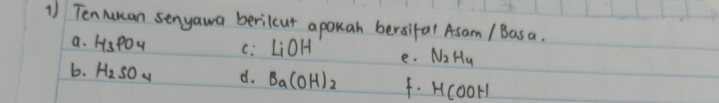 1) Tentukan senyawa berikut apakah bersifat Asam / Basa.
a. H3PO4 c. LiOH e. N2H4
b. H2SO4 d. Ba(OH)2 f. HCOOH